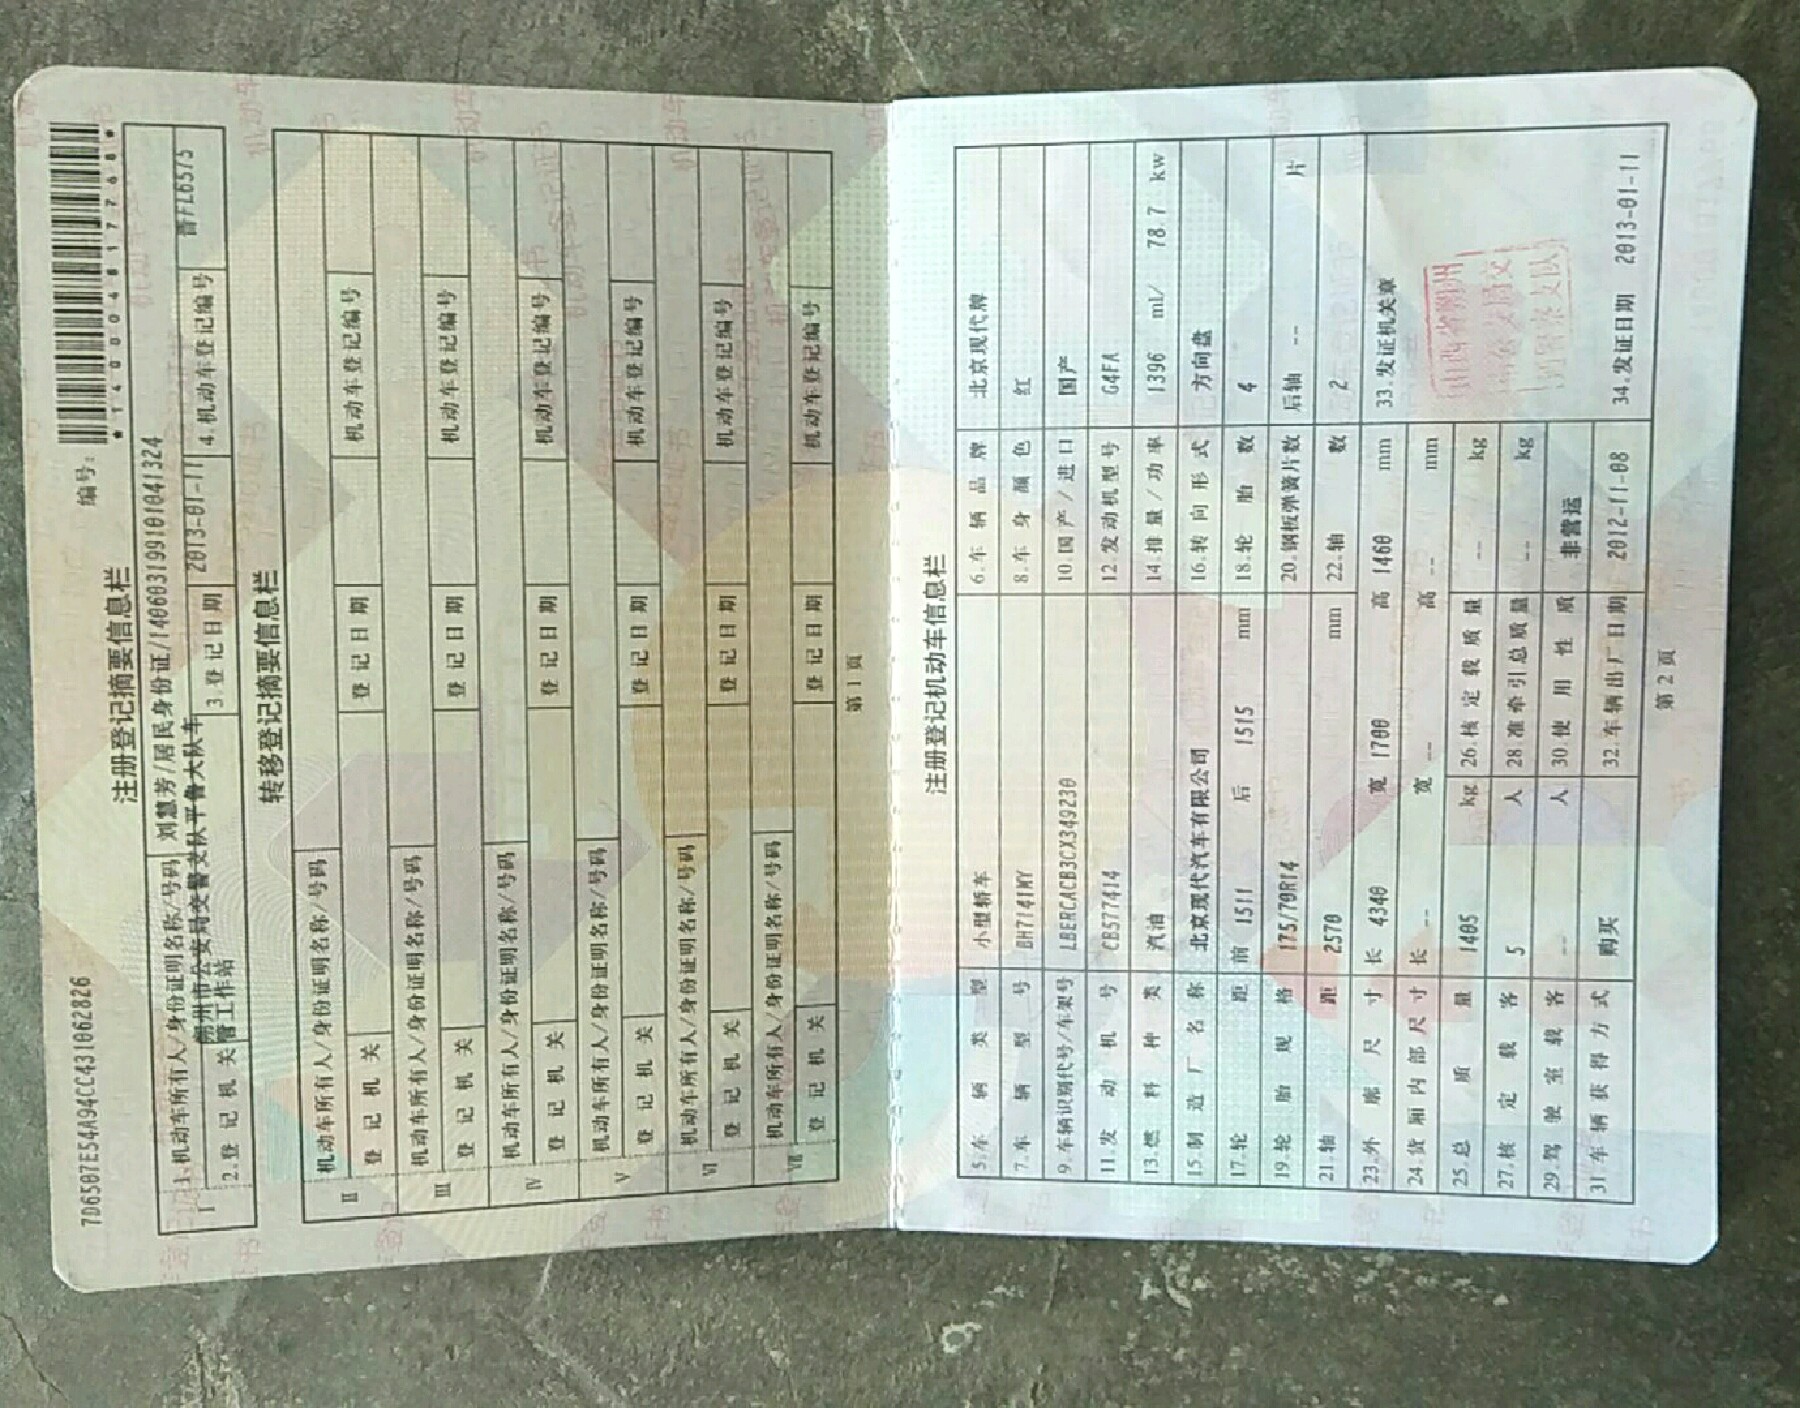 7D6507E54A94CC43106282​6
编号:
*140004817768*
注册登记摘要信息栏
I 1.机动车所有人/身份证明名称/号码 刘慧芳/居民身份证/140603199101041324
2.登记机关 朔州市公安局交警支队平鲁大队车管工作站 3.登记日期 2013-01-11 4.机动车登记编号 晋FL6575
转移登记摘要信息栏
II 机动车所有人/身份证明名称/号码
登记机关 登记日期 机动车登记编号
III 机动车所有人/身份证明名称/号码
登记机关 登记日期 机动车登记编号
IV 机动车所有人/身份证明名称/号码
登记机关 登记日期 机动车登记编号
V 机动车所有人/身份证明名称/号码
登记机关 登记日期 机动车登记编号
VI 机动车所有人/身份证明名称/号码
登记机关 登记日期 机动车登记编号
VII 机动车所有人/身份证明名称/号码
登记机关 登记日期 机动车登记编号
第1页
注册登记机动车信息栏
5.车辆类型 小型轿车 6.车辆品牌 北京现代牌
7.车辆型号 BH7141MY 8.车身颜色 红
9.车辆识别代号/车架号 LBERCACB3CX349230 10.国产/进口 国产
11.发动机号 CB577414 12.发动机型号 G4FA
13.燃料种类 汽油 14.排量/功率 1396 ml/ 78.7 kw
15.制造厂名称 北京现代汽车有限公司 16.转向形式 方向盘
17.轮距 前 1511 后 1515 mm 18.轮胎数 4
19.轮胎规格 175/70R14 20.钢板弹簧片数 后轴 -- 片
21.轴距 2570 mm 22.轴数 2
23.外廓尺寸 长 4340 宽 1700 高 1460 mm 33.发证机关章
24.货厢内部尺寸 长 -- 宽 -- 高 -- mm
25.总质量 1405 kg 26.核定载质量 -- kg
27.核定载客 5 人 28.准牵引总质量 -- kg
29.驾驶室载客 -- 人 30.使用性质 非营运
31.车辆获得方式 购买 32.车辆出厂日期 2012-11-08 34.发证日期 2013-01-11
山西省朔州
市公安局交
通警察支队
第2页